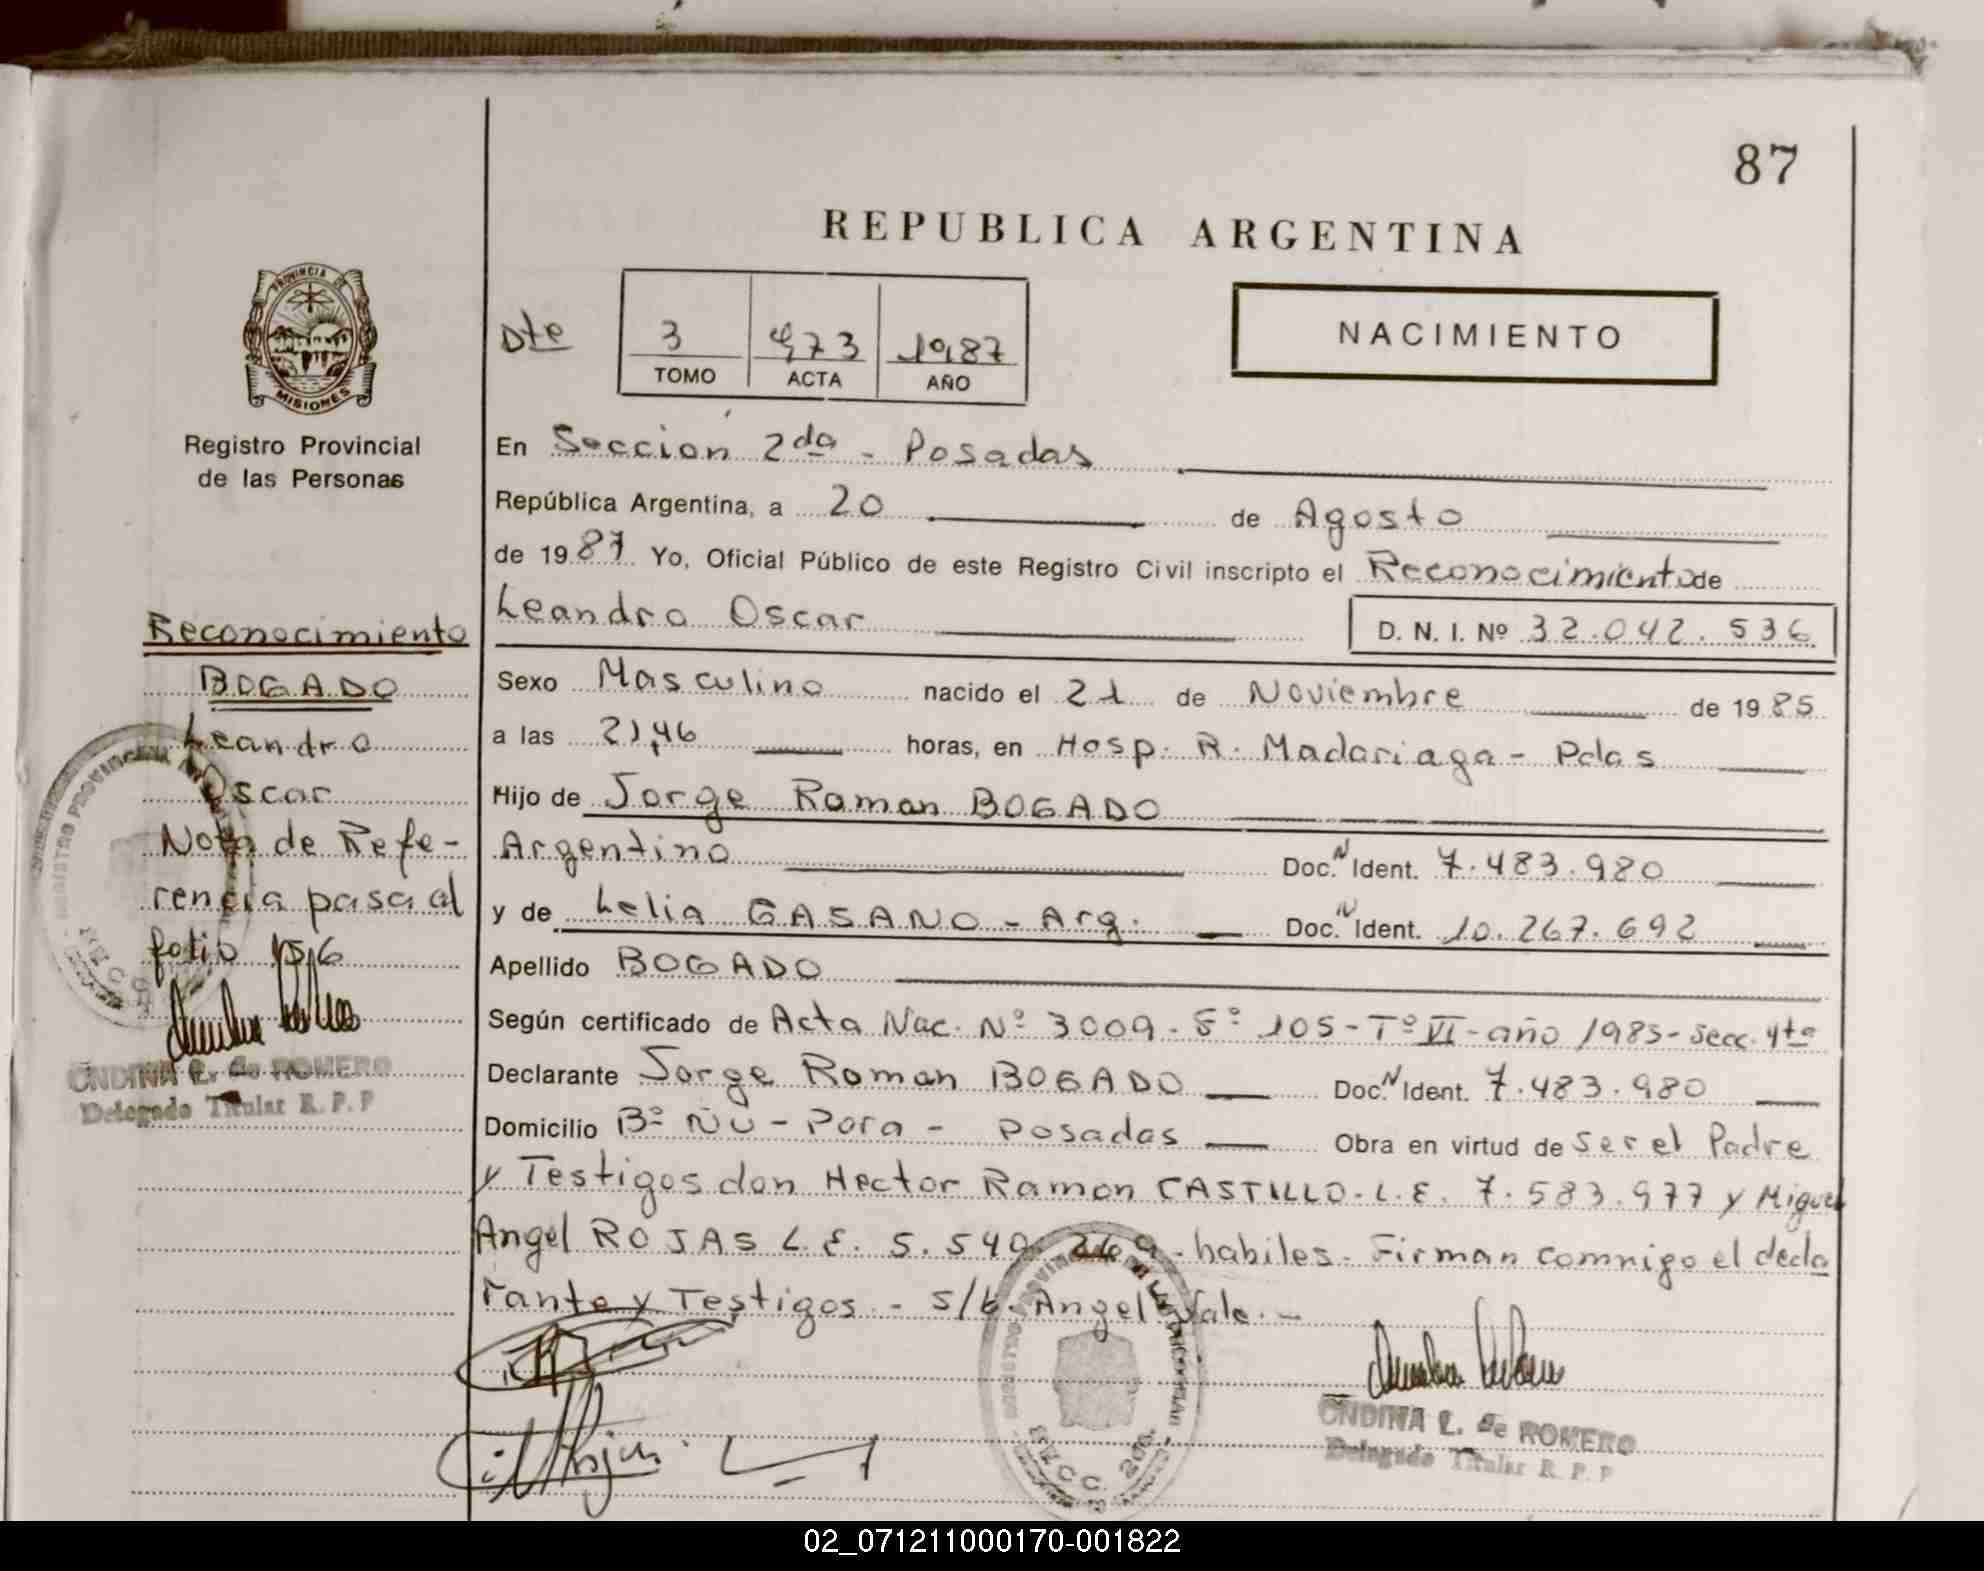 87
REPUBLICA ARGENTINA
PROVINCIA DE
MISIONES
Registro Provincial
de las Personas
Dte
3 473 1987
TOMO ACTA AÑO
NACIMIENTO
En Seccion 2da - Posadas
República Argentina, a 20 de Agosto
de 1987 Yo, Oficial Público de este Registro Civil inscripto el Reconocimiento de
Leandro Oscar D. N. I. Nº 32.042.536
Sexo Masculino nacido el 21 de Noviembre de 1985
a las 21,46 horas, en Hosp. R. Madariaga - Pdas
Hijo de Jorge Roman BOGADO
Argentino Doc. N Ident. 7.483.980
y de Lelia GASANO - Arg. Doc. N Ident. 10.267.692
Apellido BOGADO
Según certificado de Acta Nac. Nº 3009 - Fº 105 - Tº VI - año 1985 - Secc. 4ta
Declarante Jorge Roman BOGADO Doc. N Ident. 7.483.980
Domicilio Bº Ñu - Pora - Posadas Obra en virtud de ser el Padre
y Testigos don Hector Ramon CASTILLO - L.E. 7.583.977 y Miguel
Angel ROJAS L.E. 5.549.269 - habiles - Firman comnigo el decla
rante y Testigos - S/b. Angel Vale. -
ONDINA L. de ROMERO
Delegado Titular R. P. P
Reconocimiento
BOGADO
Leandro
Oscar
Nota de Refe-
rencia pasa al
folio 156
ONDINA L. de ROMERO
Delegado Titular R. P. P
02_071211000170-001822